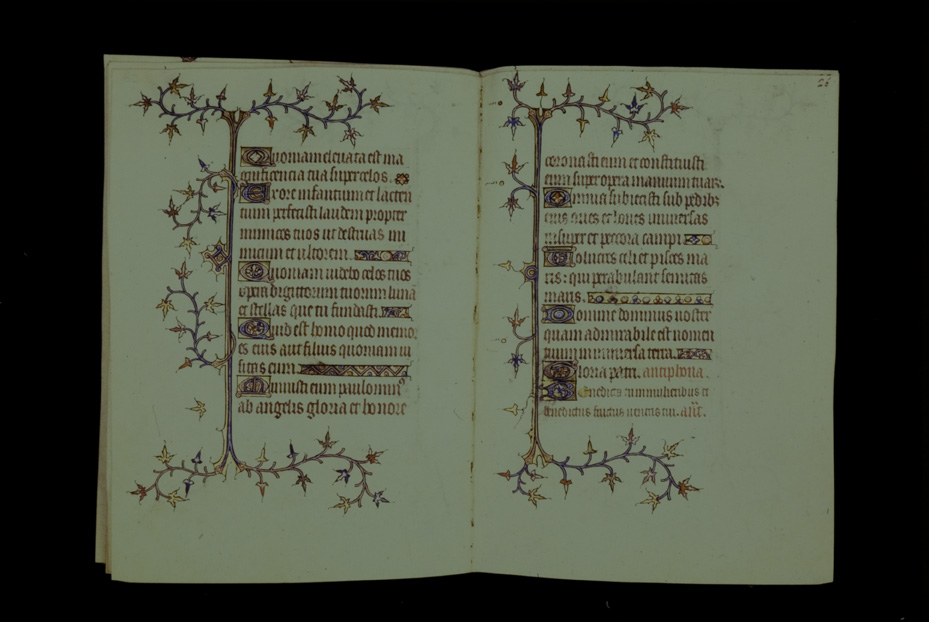 Quoniam eleuata est ma
gnificencia tua super celos.
Ex ore infantium et lacten
cium perfecisti laudem propter
inimicos tuos ut destruas ini
micum et ultorem.
Quoniam uidebo celos tuos
opera digittorum tuorum lunā
et stellas que tu fundasti.
Quid est homo quod memor
es eius aut filius quoniam ui
sitas eum.
Minuisti eum paulominꝰ
ab angelis gloria et honore
coronasti eum et constituisti
eum super opera manuum tuaꝝ.
Omnia subiecisti sub pedibꝫ
eius oues et boues uniuersas
insuper et peccora campi
Uolucres celi et pisces ma
ris: qui perabulant semitas
maris.
Domine dominus noster
quam admirabile est nomen
tuum in uniuersa terra.
Gloria patri. antiphona.
Benedicta tu in mulieribus et
benedictus fructus uentris tui. añ.